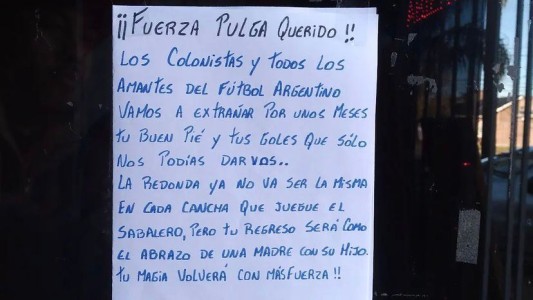 ¡¡FUERZA PULGA QUERIDO!!
LOS COLONISTAS Y TODOS LOS
AMANTES DEL FÚTBOL ARGENTINO
VAMOS A EXTRAÑAR POR UNOS MESES
TU BUEN PIÉ Y TUS GOLES QUE SÓLO
NOS PODÍAS DAR VOS..
LA REDONDA YA NO VA SER LA MISMA
EN CADA CANCHA QUE JUEGUE EL
SABALERO, PERO TU REGRESO SERÁ COMO
EL ABRAZO DE UNA MADRE CON SU HIJO.
TU MAGIA VOLVERÁ CON MÁS FUERZA!!